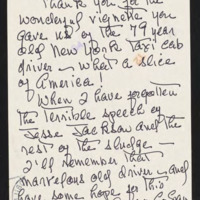 Thank you for the
wonderful vignette you
gave us of the 79 year
old New York Taxi cab
driver - what a slice
of America!
When I have forgotten
the terrible speech of
Jesse Jackson and the
rest of the sludge -
I'll remember that
marvelous old driver - and
have some hope for this